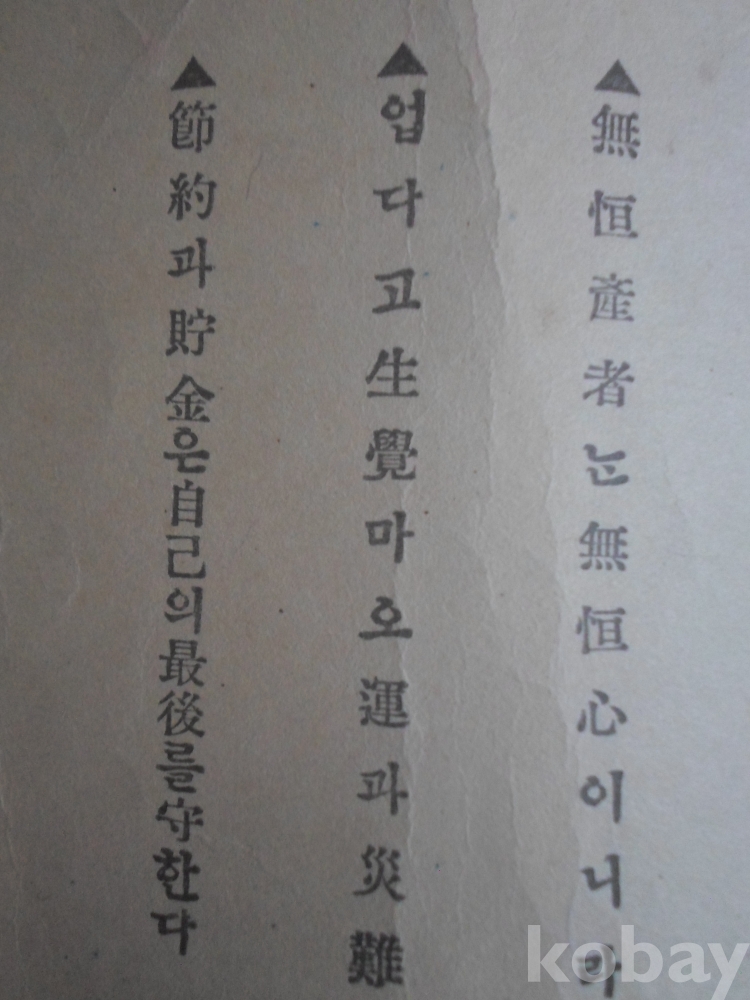 ▲無恒産者는無恒心이니라
▲업다고生覺마오運과災難
▲節約과貯金은自己의最後를守한다
kobay